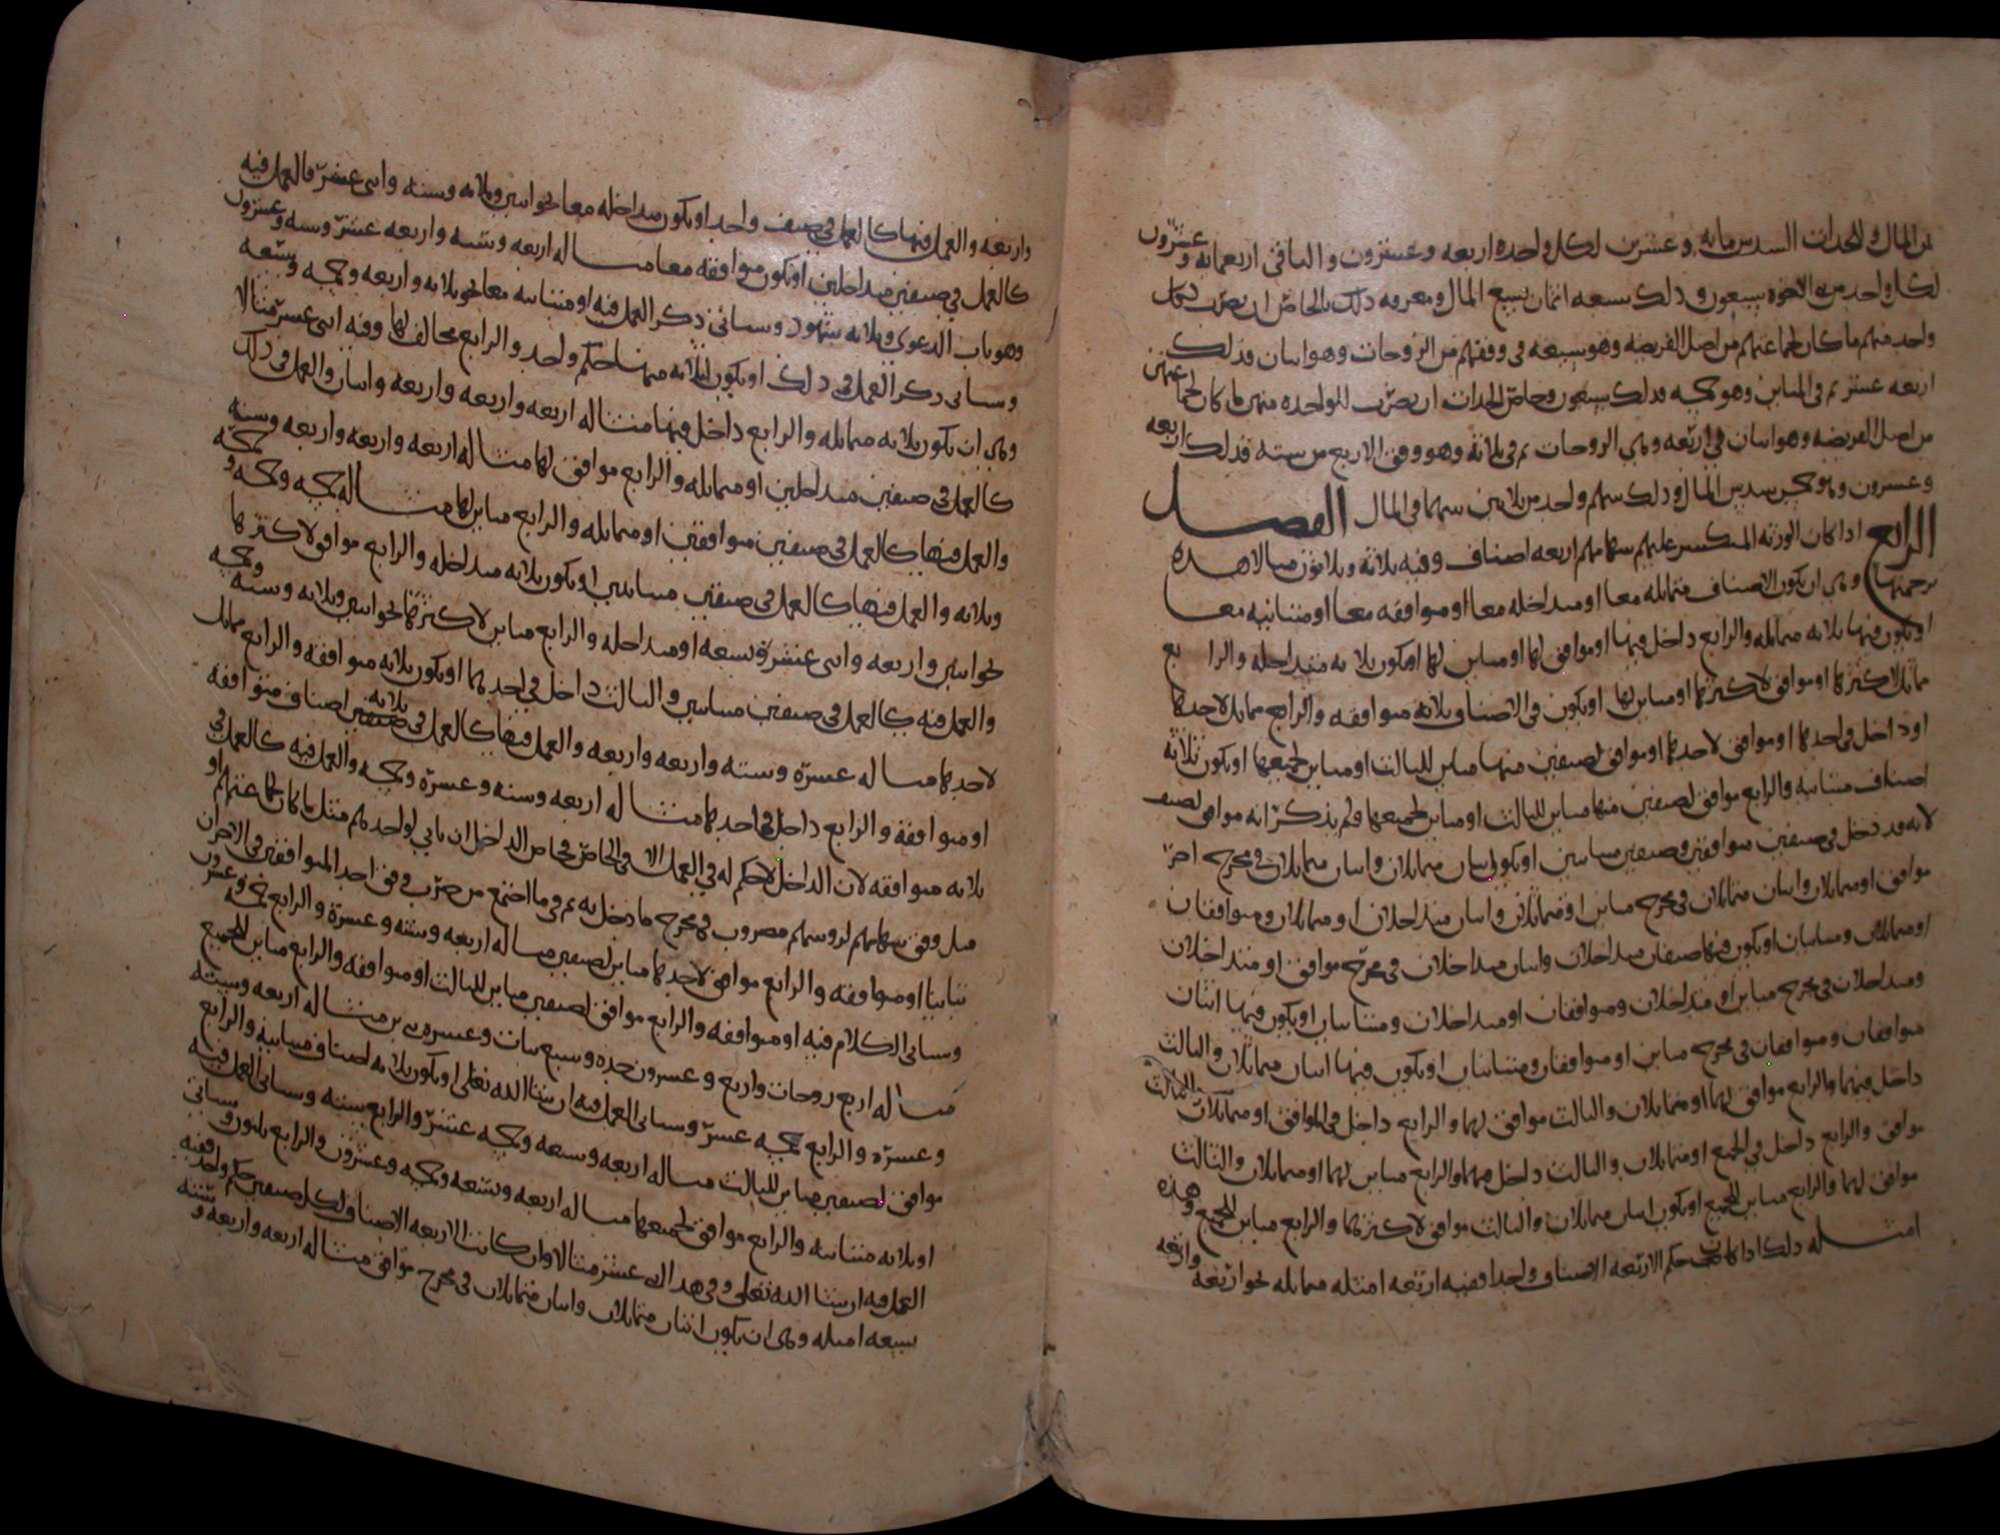 من المال وللجدات السدس مايه وعشرين لكل واحده اربعه وعشرون والباقي اربعمايه وعشرون
لكل واحد من الاخوه سبعون وذلك سبعه اثمان سبع المال ومعرفه ذلك بالخاص ان يضرب لكل
واحد منهم ما كان لجماعتهم من اصل الفريضه وهو سبعه في وفقهم من الزوجات وهو اثنان فذلك
اربعه عشر ثم في المباين وهو خمسه فذلك سبعون وخاص الجدات ان يضرب للواحده منهن ما كان لجماعتهن
من اصل الفريضه وهو اثنان في اربعه وهي الزوجات ثم في ثلاثة وهو وفق الاربع من سته فذلك اربعه
وعشرون وهو خمس سدس المال وذلك سهم واحد من ثلاثين سهما في المال الفصل
الرابع اذا كان الورثه المنكسر عليهم سهامهم اربعه اصناف وفيه ثلاثة وثلاثون مثالا هذه
ترجمتها وهي ان يكون الاصناف متماثله معا او متداخله معا او متوافقه معا او متباينه معا
او يكون فيها ثلاثه متماثله والرابع داخل فيها او موافق لها او مباين لها او يكون ثلاثه متداخله والرابع
مماثل لاكثرها او موافق لاكثرها او مباين لها او يكون في الاصناف ثلاثه متوافقه والرابع مماثل لاحدها
او داخل في احدها او موافق لاحدها او موافق لصنفين منها مباين للثالث او مباين لجميعها او يكون ثلاثه
اصناف متباينه والرابع موافق لصنفين منها مباين للثالث او مباين لجميعها ولم يذكر انه موافق لصنف
لانه قد دخل في صنفين متوافقين وصنفين متباينين او يكون اثنان متماثلان واثنان متماثلان في مخرج اخر
موافق او متماثلان واثنان متماثلان في مخرج مباين او متماثلان واثنان متداخلان او متماثلان ومتوافقان
او متماثلان ومتباينان او يكون فيها صنفان متداخلان واثنان متداخلان في مخرج موافق او متداخلان
ومتداخلان في مخرج مباين او متداخلان ومتوافقان او متداخلان ومتباينان او يكون فيها اثنان
متوافقان ومتوافقان في مخرج مباين او متوافقان ومتباينان او يكون فيها اثنان متماثلان والثالث
داخل فيهما والرابع موافق لهما او متماثلان والثالث موافق لهما والرابع داخل في الموافق او متماثلان والثالث
موافق والرابع داخل في الجميع او متماثلان والثالث داخل فيهما والرابع مباين لهما او متماثلان والثالث
موافق لهما والرابع مباين للجميع او يكون اثنان متماثلان والثالث موافق لاكثرهما والرابع مباين للجميع وهذه
امثله ذلك اذا كان حكم الاربعه الاصناف واحدا ففيه اربعه امثله متماثله نحو اربعه واربعه
واربعه والعمل فيها كالعمل في صنف واحد او يكون متداخله معا نحو اثنين وثلاثه وسته واثني عشر فالعمل فيه
كالعمل في صنفين متداخلين او يكون متوافقه معا مثاله اربعه وسته واربعه عشر وسته وعشرون
وهو باب الدعوى وثلاثه شهود وسياتي ذكر العمل فيه او متباينه معا نحو ثلاثه واربعه وخمسه وسبعه
وسياتي ذكر العمل في ذلك او يكون لثلاثه منها حكم واحد والرابع مخالف لها وفيه اثني عشر مثالا
وهي ان يكون ثلاثه متماثله والرابع داخل فيها مثاله اربعه واربعه واربعه واثنان والعمل في ذلك
كالعمل في صنفين متداخلين او متماثله والرابع موافق لها مثاله اربعه واربعه واربعه وسته
والعمل فيها كالعمل في صنفين متوافقين او متماثله والرابع مباين لها مثاله خمسه وخمسه وخمسه
وثلاثه والعمل فيها كالعمل في صنفين متباينين او يكون ثلاثه متداخله والرابع موافق لاكثرها
نحو اثنين واربعه واثني عشرة وتسعه او متداخله والرابع مباين لاكثرها نحو اثنين وثلاثه وسته وخمسه
والعمل فيه كالعمل في صنفين متباينين والثالث داخل في احدهما او يكون ثلاثه متوافقه والرابع مماثل
لاحدها مثاله عشره وسته واربعه واربعه والعمل فيها كالعمل في ثلاثه اصناف متوافقه
او متوافقة والرابع داخل في احدها مثاله اربعه وسته وعشره وخمسه والعمل فيه كالعمل في
ثلاثه متوافقه لان الداخل لا حكم له في العمل الا في الخاص فخاص الداخل ان ياتي لواحدهم مثل ما كان لجماعتهم او
مثل وفق سهامهم لروسهم مضروب في مخرج ما دخل به ثم في ما اجتمع من ضرب وفق احد المتوافقين في الاخر ان
تباينا او متوافقه والرابع موافق لاحدها مباين لصنفين مثاله اربعه وسته وعشرة والرابع خمسه وعشرون
وسياتي الكلام فيه او متوافقه والرابع موافق لصنفين مباين للثالث او متوافقه والرابع مباين للجميع
مثاله اربع زوجات واربع وعشرون جده وسبع بنات وعشرون مثاله اربعه وسته
وعشره والرابع خمسه عشر وسياتي العمل فيه ان شا الله تعالى او يكون ثلاثه اصناف متباينه والرابع
موافق لصنفين مباين للثالث مثاله اربعه وسبعه وخمسه عشر والرابع سته وسياتي العمل فيه
او ثلاثه متباينه والرابع موافق لجميعها مثاله اربعه وتسعه وخمسه وعشرون والرابع ثلثون وسياتي
العمل فيه ان شا الله تعالى وفي هذا اثني عشر مثالا وان كانت الاربعه الاصناف لكل صنفين حكم واحد ففيه
سبعه امثله وهي ان يكون اثنان متماثلان واثنان متماثلان في مخرج موافق مثاله اربعه واربعه وسته وسته